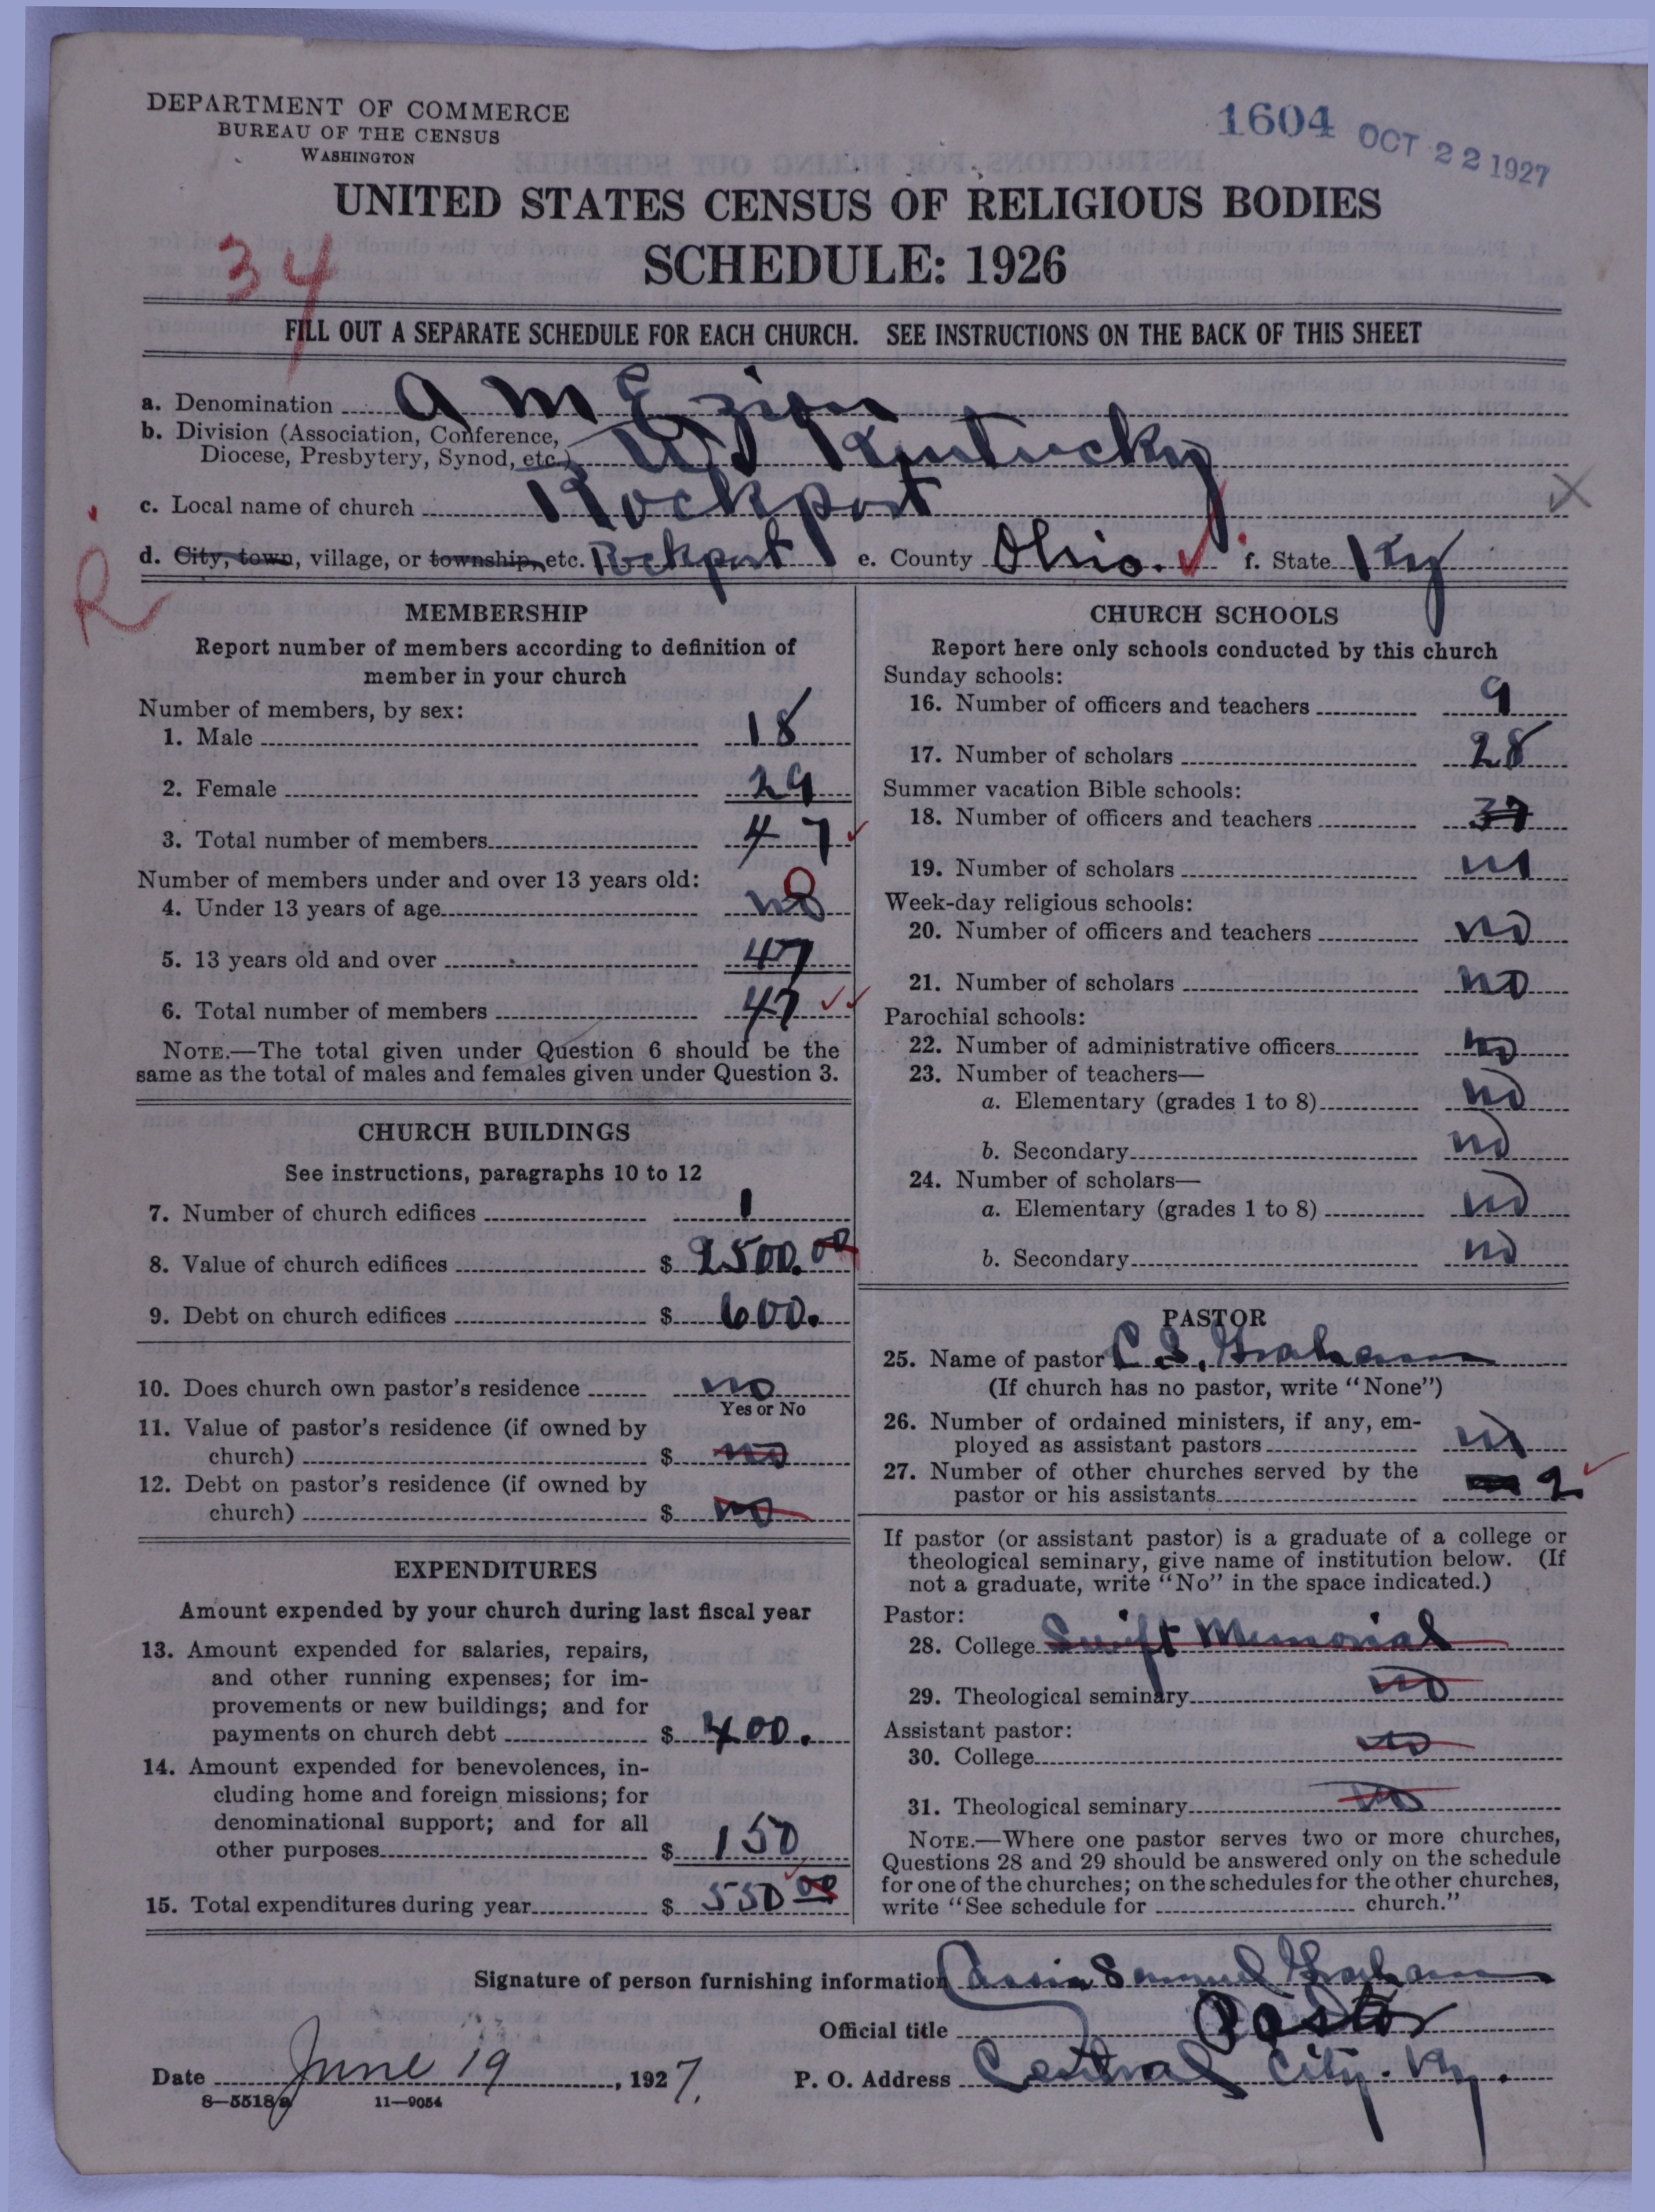 DEPARTMENT OF COMMERCE
BUREAU OF THE CENSUS
WASHINGTON
1604 OCT 22 1927
UNITED STATES CENSUS OF RELIGIOUS BODIES
SCHEDULE: 1926
34
FILL OUT A SEPARATE SCHEDULE FOR EACH CHURCH. SEE INSTRUCTIONS ON THE BACK OF THIS SHEET
a. Denomination A M E Zion
b. Division (Association, Conference,
Diocese, Presbytery, Synod, etc.) Kentucky
c. Local name of church Rockport
X
d. City, town, village, or township, etc. Rockport e. County Ohio. f. State Ky
R
MEMBERSHIP
Report number of members according to definition of
member in your church
Number of members, by sex:
1. Male 18
2. Female 29
3. Total number of members 47
Number of members under and over 13 years old:
4. Under 13 years of age no 0
5. 13 years old and over 47
6. Total number of members 47
NOTE.—The total given under Question 6 should be the
same as the total of males and females given under Question 3.
CHURCH BUILDINGS
See instructions, paragraphs 10 to 12
7. Number of church edifices 1
8. Value of church edifices $ 2500.00
9. Debt on church edifices $ 600.
10. Does church own pastor's residence no
Yes or No
11. Value of pastor's residence (if owned by
church) $ no
12. Debt on pastor's residence (if owned by
church) $ no
EXPENDITURES
Amount expended by your church during last fiscal year
13. Amount expended for salaries, repairs,
and other running expenses; for im-
provements or new buildings; and for
payments on church debt $ 400.
14. Amount expended for benevolences, in-
cluding home and foreign missions; for
denominational support; and for all
other purposes $ 150
15. Total expenditures during year $ 550 00
CHURCH SCHOOLS
Report here only schools conducted by this church
Sunday schools:
16. Number of officers and teachers 9
17. Number of scholars 28
Summer vacation Bible schools:
18. Number of officers and teachers 37
19. Number of scholars no
Week-day religious schools:
20. Number of officers and teachers no
21. Number of scholars no
Parochial schools:
22. Number of administrative officers no
23. Number of teachers—
a. Elementary (grades 1 to 8) no
b. Secondary no
24. Number of scholars—
a. Elementary (grades 1 to 8) no
b. Secondary no
PASTOR
25. Name of pastor C. S. Graham
(If church has no pastor, write "None")
26. Number of ordained ministers, if any, em-
ployed as assistant pastors no
27. Number of other churches served by the
pastor or his assistants 2
If pastor (or assistant pastor) is a graduate of a college or
theological seminary, give name of institution below. (If
not a graduate, write "No" in the space indicated.)
Pastor:
28. College Swift Memorial
29. Theological seminary no
Assistant pastor:
30. College no
31. Theological seminary no
NOTE.—Where one pastor serves two or more churches,
Questions 28 and 29 should be answered only on the schedule
for one of the churches; on the schedules for the other churches,
write "See schedule for church."
Signature of person furnishing information Samuel Graham
Official title Pastor
Date June 19, 1927. P. O. Address Central City. Ky.
8—5518a 11—9054